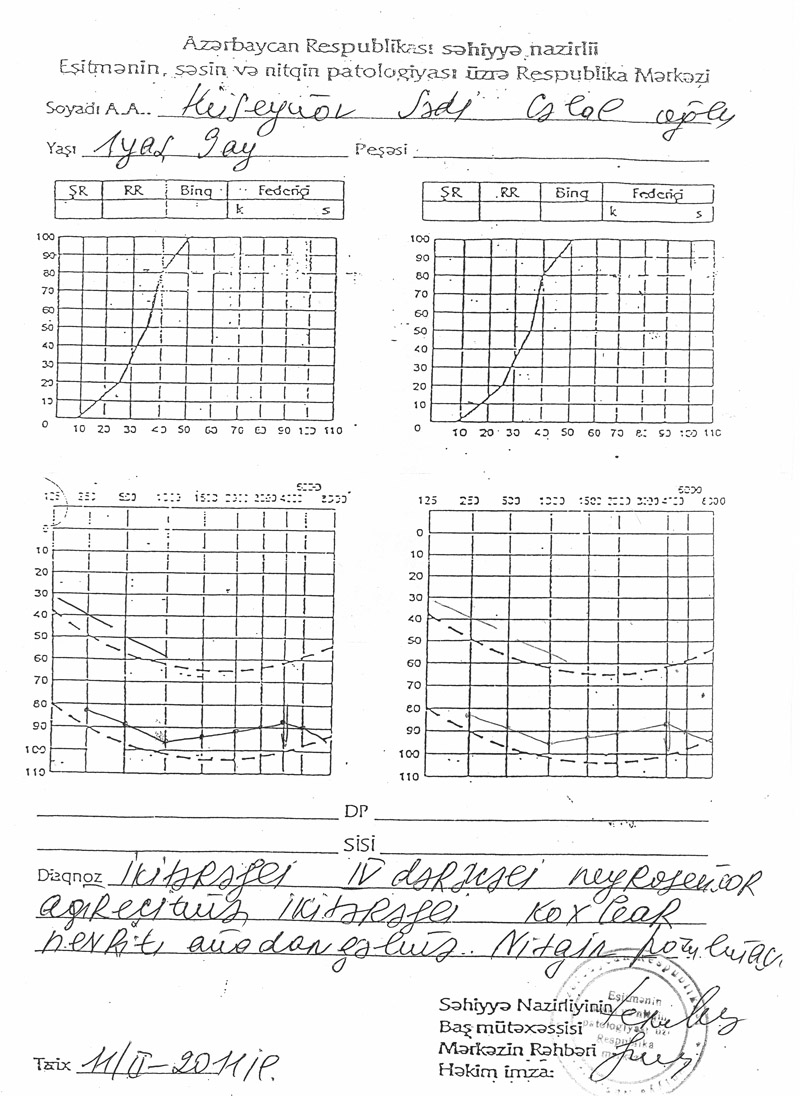 Azərbaycan Respublikası səhiyyə nazirlii
Eşitmənin, səsin və nitqin patologiyası üzrə Respublika Mərkəzi
Soyadı A.A.. Hüseynov Sədi Cəlal oğlu
Yaşı 1 yaş 9 ay Peşəsi
ŞR RR Binq Federiçi
k s
ŞR RR Binq Federiçi
k s
100 90 80 70 60 50 40 30 20 10 0
10 20 30 40 50 60 70 80 90 100 110
100 90 80 70 60 50 40 30 20 10 0
10 20 30 40 50 60 70 80 90 100 110
6000
125 250 500 1000 1500 2000 3000 4000 8000
0 10 20 30 40 50 60 70 80 90 100 110
6000
125 250 500 1000 1500 2000 3000 4000 8000
0 10 20 30 40 50 60 70 80 90 100 110
DP
SİSİ
Diaqnoz İkitərəfli IV dərəcəli neyrosensor
ağırlıq ikitərəfli koxlear
nevriti anadangəlmə.. Nitqin pozulması
Səhiyyə Nazirliyinin
Baş mütəxəssisi
Mərkəzin Rəhbəri
Həkim imza:
Tarix 11/II-2011
Eşitmənin
patologiyası üz
Respublika